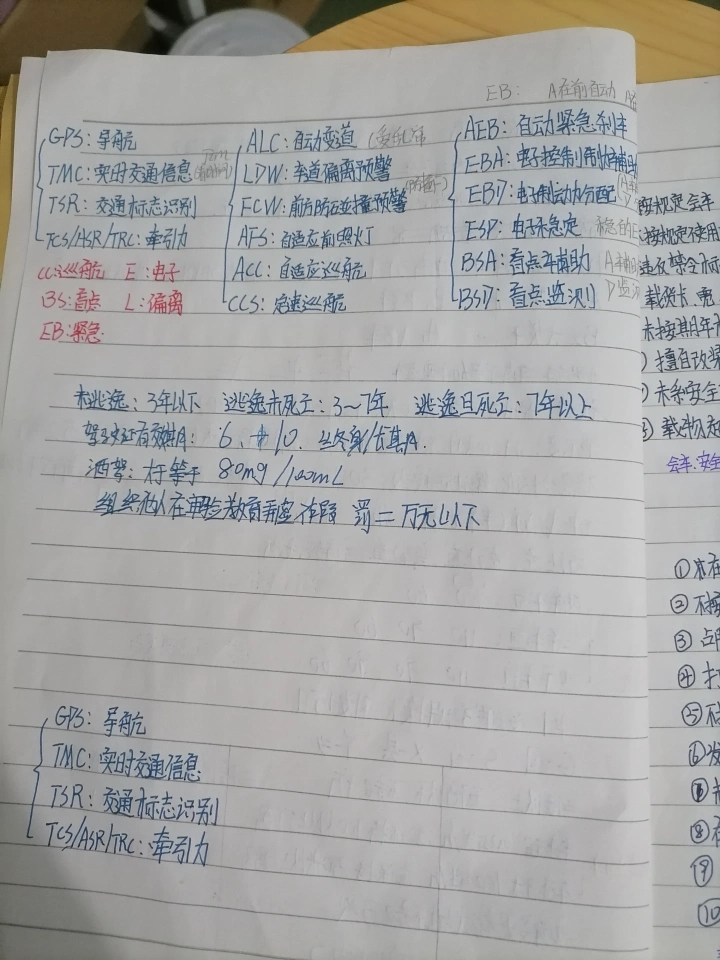 EB: A在前自动
GPS: 导航
TMC: 实时交通信息
TSR: 交通标志识别
TCS/ASR/TRC: 牵引力
CC: 巡航 E: 电子
BS: 盲点 L: 偏离
EB: 紧急
ALC: 自动变道
LDW: 车道偏离预警
FCW: 前方防碰撞预警
AFS: 自适应前照灯
ACC: 自适应巡航
CCS: 定速巡航
AEB: 自动紧急刹车
EBA: 电子控制制动辅助
EBD: 电子制动力分配
ESP: 电子稳定
BSA: 盲点辅助
BSD: 盲点监测
未逃逸: 3年以下 逃逸未死亡: 3~7年 逃逸且死亡: 7年以上
驾驶证有效期: 6、10、终身/长期.
酒驾: 大于等于 80mg/100mL
组织他人在审验教育弄虚作假 罚二万元以下
GPS: 导航
TMC: 实时交通信息
TSR: 交通标志识别
TCS/ASR/TRC: 牵引力
按规定会车
按规定使用
违反禁令标
载货长
未按期年
擅自改
未系安全
载物
会车.安全
①未在
②不按
③占用
④
⑤
⑥发
⑦
⑧
⑨
⑩